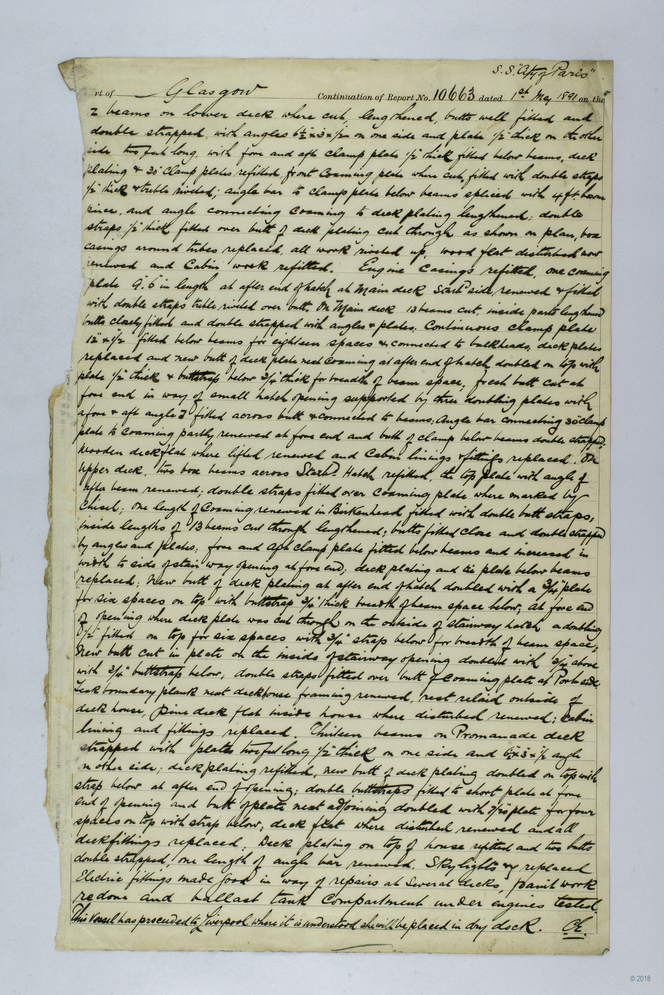 S.S. "City of Paris"
rt of Glasgow Continuation of Report No. 10663 dated 1st May 1891 on the
2 beams on lower deck where cut, lengthened, butts well fitted and
double strapped, with angles 6½ x 3 x ½ on one side and plate ½" thick on the other
side two feet long, with fore and aft clamp plate ½" thick fitted below beams, deck
plating & 30" clamp plates refitted, front coaming plate where cut, fitted with double straps
½" thick & treble riveted; angle bar to clamp plate below beams spliced with 4 ft
pieces, and angle connecting coaming to deck plating lengthened, double
straps, ½" thick fitted over butt of deck plating cut through as shown on plan, box
casings around tubes replaced, all work riveted up, wood flat disturbed now
renewed and Cabin work refitted. Engine Casings refitted, one coaming
plate 9.6 in length at after end of hatch at Main deck Starbd side, renewed & fitted
with double straps treble riveted over butt, On Main deck 13 beams cut, inside parts lengthened
butts closely fitted and double strapped with angles & plates. Continuous clamp plate
12" x ½ fitted below beams for eighteen spaces & connected to bulkheads, deck plates
replaced and new butt of deck plate next coaming at after end of hatch, doubled on top with
plate ½" thick & buttstrap below ¾" thick for breadth of beam space, fresh butt cut at
fore end in way of small hatch opening supported by three doubling plates with
a fore & aft angle fitted across butt & connected to beams. Angle bar connecting 30" clamp
plate to coaming partly renewed at fore end and butt of clamp below beams double strapped,
wooden deck flat where lifted renewed and Cabin linings & fittings replaced. On
upper deck, two box beams across Starbd Hatch refitted, the top plate with angle of
after beam renewed; double straps fitted over coaming plate where marked by
chisel; one length of Coaming renewed in Birkenhead fitted with double butt straps;
inside lengths of 13 beams cut through lengthened; butts fitted close and double strapped
by angles and plates; fore and aft clamp plate fitted below beams and increased in
width to side of stair way opening at fore end, deck plating and tie plate below beams
replaced. New butt of deck plating at after end of hatch doubled with a ¾" plate
for six spaces on top with buttstrap ¾" thick breadth of beam space below; at fore end
of opening where deck plate was cut through on the outside of stairway hatch a doubling
½" fitted on top for six spaces with ¾" strap below for breadth of beam space,
New butt cut in plate on the inside of stairway opening doubled with above
with ¾" buttstrap below, double straps fitted over butt of coaming plate at Port side
Teak boundary plank next deckhouse framing renewed, rest relaid outside of
deck house, Pine deck flat inside house where disturbed renewed; cabin
lining and fittings replaced. Thirteen beams on Promanade deck
strapped with plates two feet long, ½" thick on one side and 6½ x 3 x ½ angle
on other side; deck plating refitted, new butt of deck plating doubled on top with
strap below at after end of opening; double buttstraps fitted to short plate at fore
end of opening and butt of plate next adjoining doubled with 7/20 plate for four
spaces on top with strap below, deck flat where disturbed renewed and all
deck fittings replaced. Deck plating on top of house refitted and two butts
double strapped, one length of angle bar renewed. Skylights &c replaced
Electric fittings made good in way of repairs at several decks, paint work
redone and ballast tank Compartment under engines tested.
This vessel has proceeded to Liverpool where it is understood she will be placed in dry dock.
© 2018